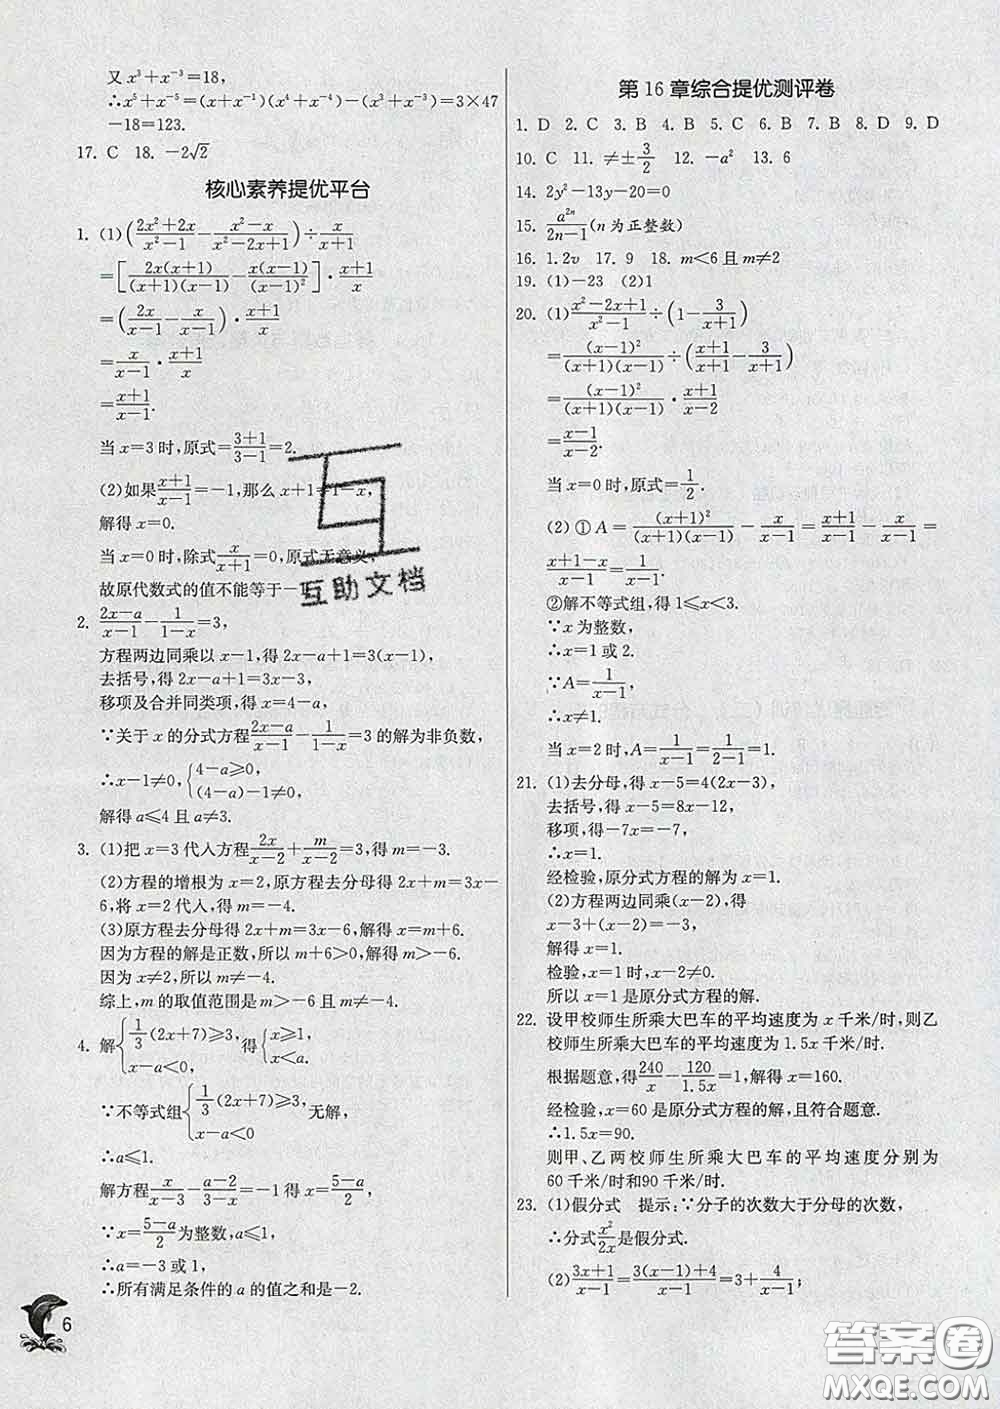 又 x³+x⁻³=18,
∴x⁵+x⁻⁵=(x+x⁻¹)(x⁴+x⁻⁴)-(x³+x⁻³)=3×47
-18=123.
17. C 18. -2√2
核心素养提优平台
1. (1)((2x²+2x)/(x²-1)-(x²-x)/(x²-2x+1))÷x/(x+1)
=[2x(x+1)/((x+1)(x-1))-x(x-1)/(x-1)²]·(x+1)/x
=(2x/(x-1)-x/(x-1))·(x+1)/x
=x/(x-1)·(x+1)/x
=(x+1)/(x-1).
当 x=3 时,原式=(3+1)/(3-1)=2.
(2)如果(x+1)/(x-1)=-1,那么 x+1=1-x,
解得 x=0.
当 x=0 时,除式x/(x+1)=0,原式无意义,
故原代数式的值不能等于-
2. (2x-a)/(x-1)-1/(1-x)=3,
方程两边同乘以 x-1,得 2x-a+1=3(x-1),
去括号,得 2x-a+1=3x-3,
移项及合并同类项,得 x=4-a,
∵关于 x 的分式方程(2x-a)/(x-1)-1/(1-x)=3 的解为非负数,
∴x-1≠0,{4-a≥0,
(4-a)-1≠0,
解得 a≤4 且 a≠3.
3. (1)把 x=3 代入方程2x/(x-2)+m/(x-2)=3,得 m=-3.
(2)方程的增根为 x=2,原方程去分母得 2x+m=3x-
6,将 x=2 代入,得 m=-4.
(3)原方程去分母得 2x+m=3x-6,解得 x=m+6.
因为方程的解是正数,所以 m+6>0,解得 m>-6.
因为 x≠2,所以 m≠-4.
综上,m 的取值范围是 m>-6 且 m≠-4.
4. 解{1/3(2x+7)≥3,
x-a<0, 得{x≥1,
x<a.
∵不等式组{1/3(2x+7)≥3,
x-a<0 无解,
∴a≤1.
解方程x/(x-3)-(a-2)/(3-x)=-1 得 x=(5-a)/2,
∵x=(5-a)/2 为整数,a≤1,
∴a=-3 或 1,
∴所有满足条件的 a 的值之和是-2.
6
第 16 章综合提优测评卷
1. D 2. C 3. B 4. B 5. C 6. B 7. B 8. D 9. D
10. C 11. ≠±3/2 12. -a² 13. 6
14. 2y²-13y-20=0
15. a²ⁿ/(2n-1)(n 为正整数)
16. 1.2v 17. 9 18. m<6 且 m≠2
19. (1)-23 (2)1
20. (1)(x²-2x+1)/(x²-1)÷(1-3/(x+1))
=(x-1)²/((x+1)(x-1))÷((x+1)/(x+1)-3/(x+1))
=(x-1)²/((x+1)(x-1))·(x+1)/(x-2)
=(x-1)/(x-2).
当 x=0 时,原式=1/2.
(2) ①A=(x+1)²/((x+1)(x-1))-x/(x-1)=(x+1)/(x-1)-x/(x-1)=
(x+1-x)/(x-1)=1/(x-1).
②解不等式组,得 1≤x<3.
∵x 为整数,
∴x=1 或 2.
∵A=1/(x-1),
∴x≠1.
当 x=2 时,A=1/(x-1)=1/(2-1)=1.
21. (1)去分母,得 x-5=4(2x-3),
去括号,得 x-5=8x-12,
移项,得-7x=-7,
∴x=1.
经检验,原分式方程的解为 x=1.
(2)方程两边同乘(x-2),得
x-3+(x-2)=-3,
解得 x=1.
检验,当 x=1 时,x-2≠0.
所以 x=1 是原分式方程的解.
22. 设甲校师生所乘大巴车的平均速度为 x 千米/时,则乙
校师生所乘大巴车的平均速度为 1.5x 千米/时.
根据题意,得240/x-120/1.5x=1,解得 x=160.
经检验,x=60 是原分式方程的解,且符合题意.
∴1.5x=90.
则甲、乙两校师生所乘大巴车的平均速度分别为
60 千米/时和 90 千米/时.
23. (1)假分式 提示:∵分子的次数大于分母的次数,
∴分式x²/2x是假分式.
(2)(3x+1)/(x-1)=(3(x-1)+4)/(x-1)=3+4/(x-1);
互
互助文档
答案卷
MXQE.COM